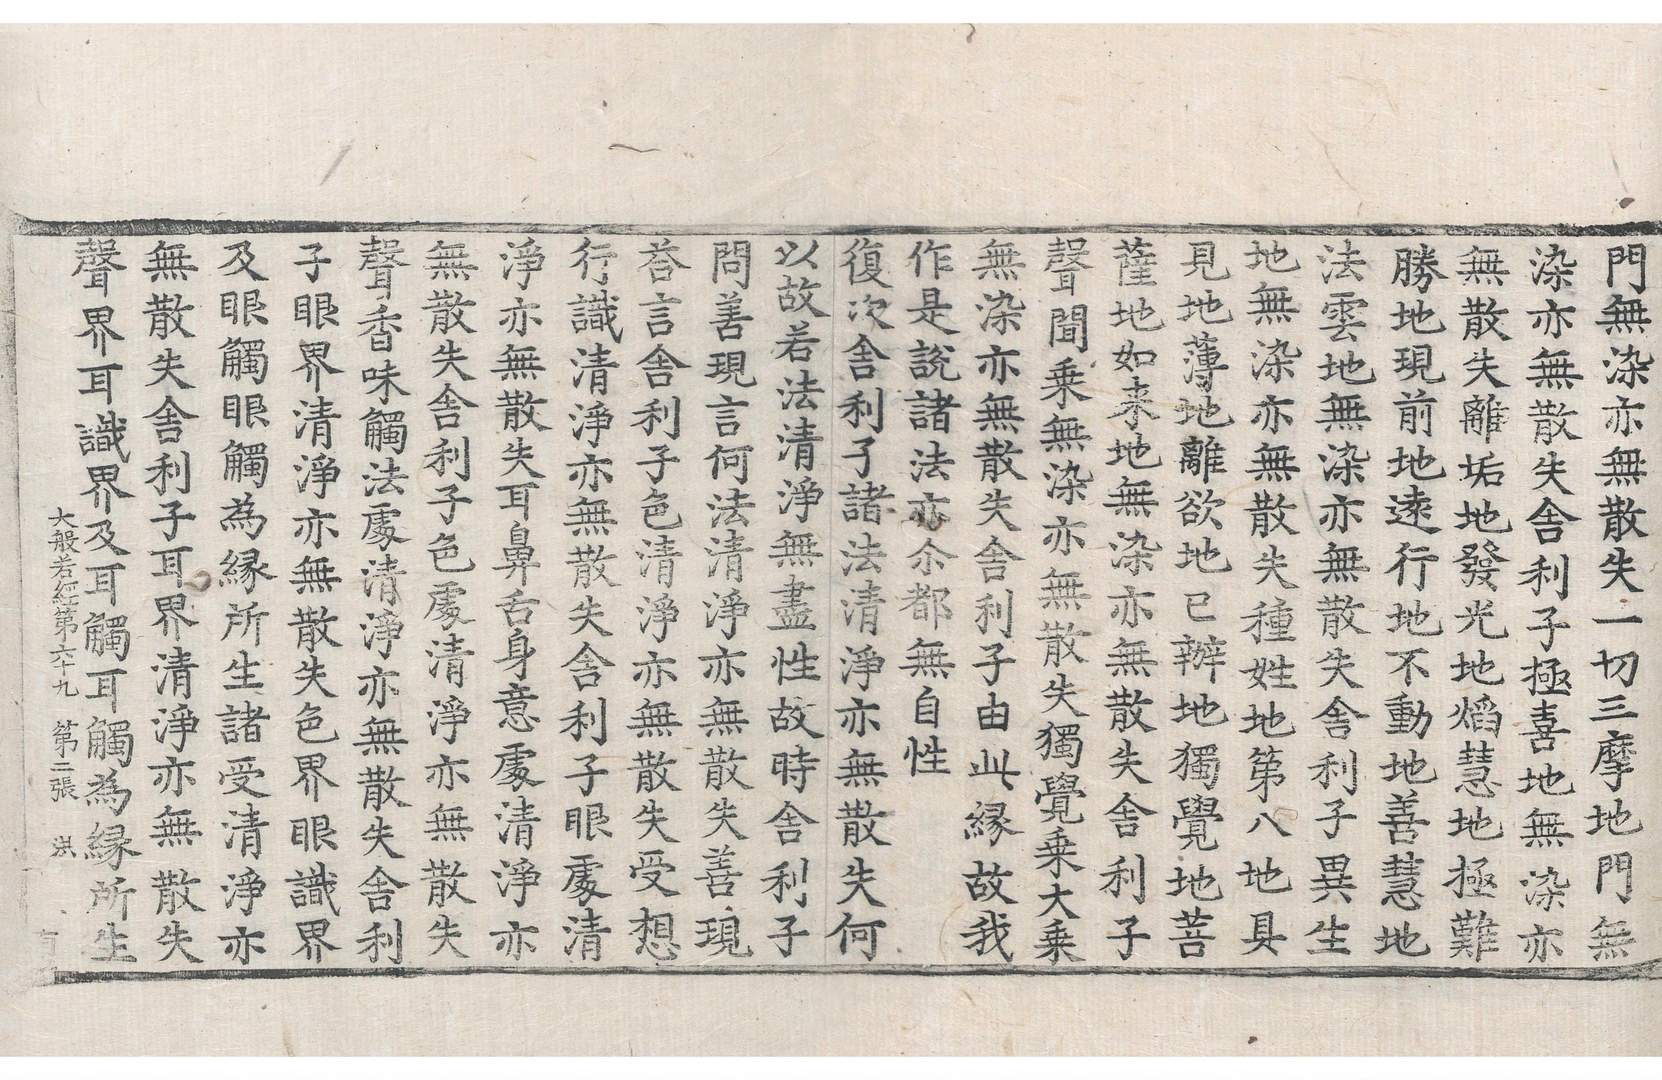 門無染亦無散失一切三摩地門無
染亦無散失舍利子極喜地無染亦
無散失離垢地發光地焰慧地極難
勝地現前地遠行地不動地善慧地
法雲地無染亦無散失舍利子異生
地無染亦無散失種姓地第八地具
見地薄地離欲地已辦地獨覺地菩
薩地如来地無染亦無散失舍利子
聲聞乗無染亦無散失獨覺乗大乗
無染亦無散失舍利子由此縁故我
作是說諸法亦尒都無自性
復次舍利子諸法清淨亦無散失何
以故若法清淨無盡性故時舍利子
問善現言何法清淨亦無散失善現
荅言舍利子色清淨亦無散失受想
行識清淨亦無散失舍利子眼處清
淨亦無散失耳鼻舌身意處清淨亦
無散失舍利子色處清淨亦無散失
聲香味觸法處清淨亦無散失舍利
子眼界清淨亦無散失色界眼識界
及眼觸眼觸為縁所生諸受清淨亦
無散失舍利子耳界清淨亦無散失
聲界耳識界及耳觸耳觸為縁所生
大般若經第六十九 第二張 洪